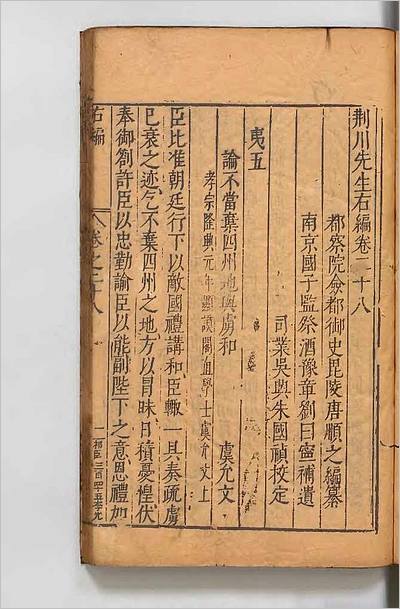 荆川先生右編卷二十八
都察院僉都御史毘陵唐順之編纂
南京國子監祭酒豫章劉曰寧補遺
司業吳興朱國禎校定
夷五
論不當棄四州地與虜和 虞允文
孝宗隆興元年顯謨閣直學士虞允文上
臣比准朝廷行下以敵國禮講和臣輙一具奏疏虜
已衰之迹乞不棄四州之地方以冒昧日積憂惶伏
奉御劄許臣以忠勤諭臣以能副陛下之意恩禮加
右編
卷之二十八
一